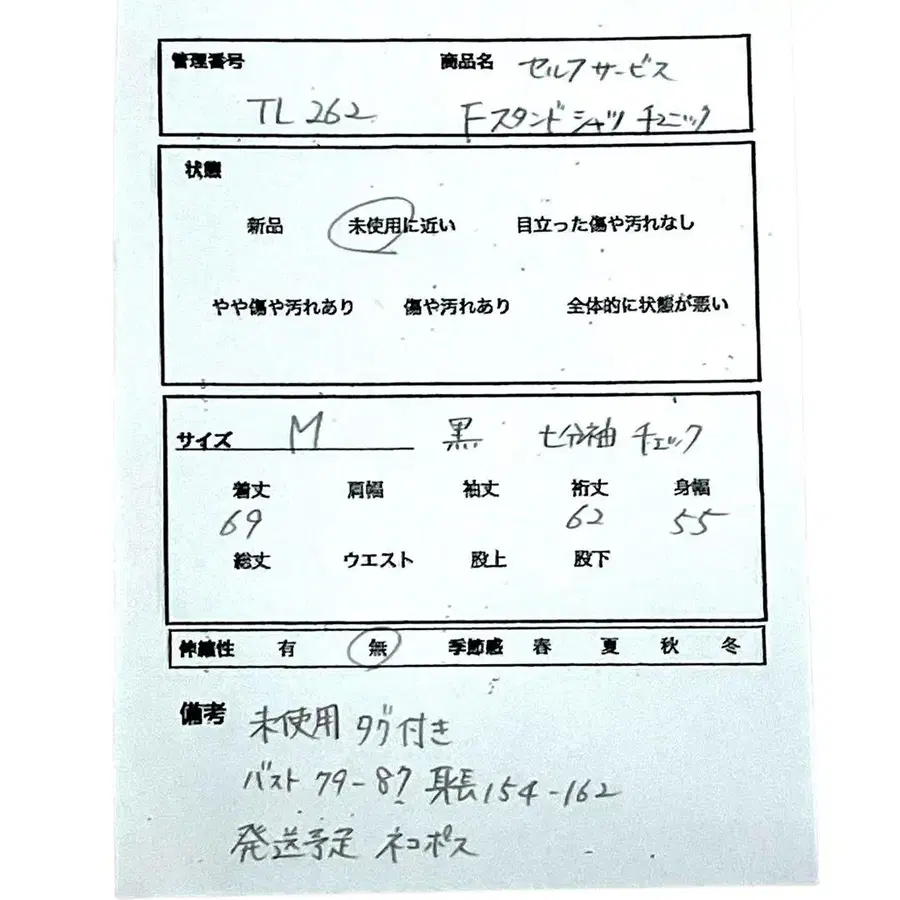 管理番号 商品名 セルフサービス
TL 262 Fスタンドシャツ チュニック
状態
新品 未使用に近い 目立った傷や汚れなし
やや傷や汚れあり 傷や汚れあり 全体的に状態が悪い
サイズ M 黒 七分袖 チェック
着丈 肩幅 袖丈 裄丈 身幅
69 62 55
総丈 ウエスト 股上 股下
伸縮性 有 無 季節感 春 夏 秋 冬
備考 未使用 タグ付き
バスト 79-87 身長154-162
発送予定 ネコポス